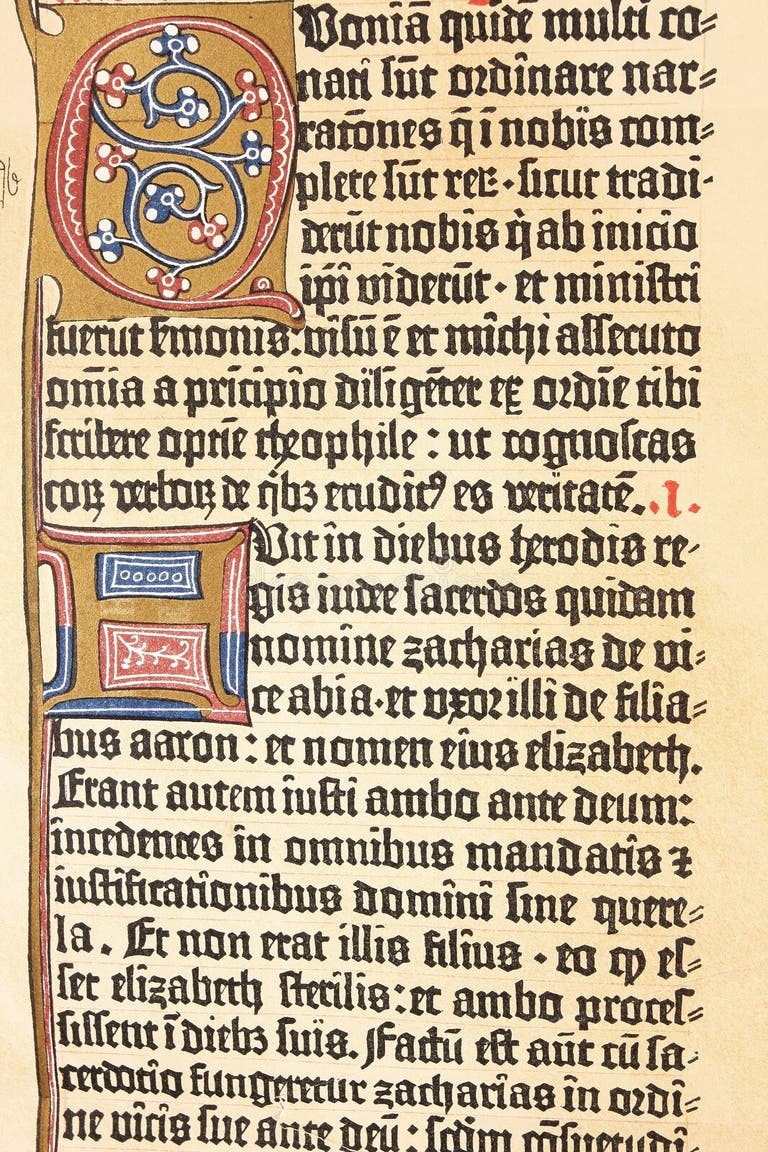 Quoniā quidē multi co=
nati sūt ordinare nar=
rationes q̄ i nobis com=
plete sūt reꝝ · sicut tradi-
derūt nobis q̇ ab inicio
ip̄i viderūt · et ministri
fuerūt s̄monis: visū ē et michi assecuto
om̄ia a pricipio diligēter ex ordīe tibi
scribere optīe theophile : ut cognoscas
eoꝝ verboꝝ de q̇bꝫ eruditꝰ es veritatē. .I.
Fuit in diebus herodis re-
gis iudee sacerdos quidam
nomine zacharias de vi=
ce abia · et uxor illi de filia=
bus aaron : et nomen eius elizabeth.
Erant autem iusti ambo ante deum:
incedentes in omnibus mandatis ⁊
iustificationibus domini sine quere=
la. Et non erat illis filius · eo ꝙ es=
set elizabeth sterilis : et ambo proces=
sissent ī diebꝫ suis. Factū est aūt cū sa-
cerdotio fungeretur zacharias in ordi=
ne vicis sue ante deū : scdm cōsuetudi-